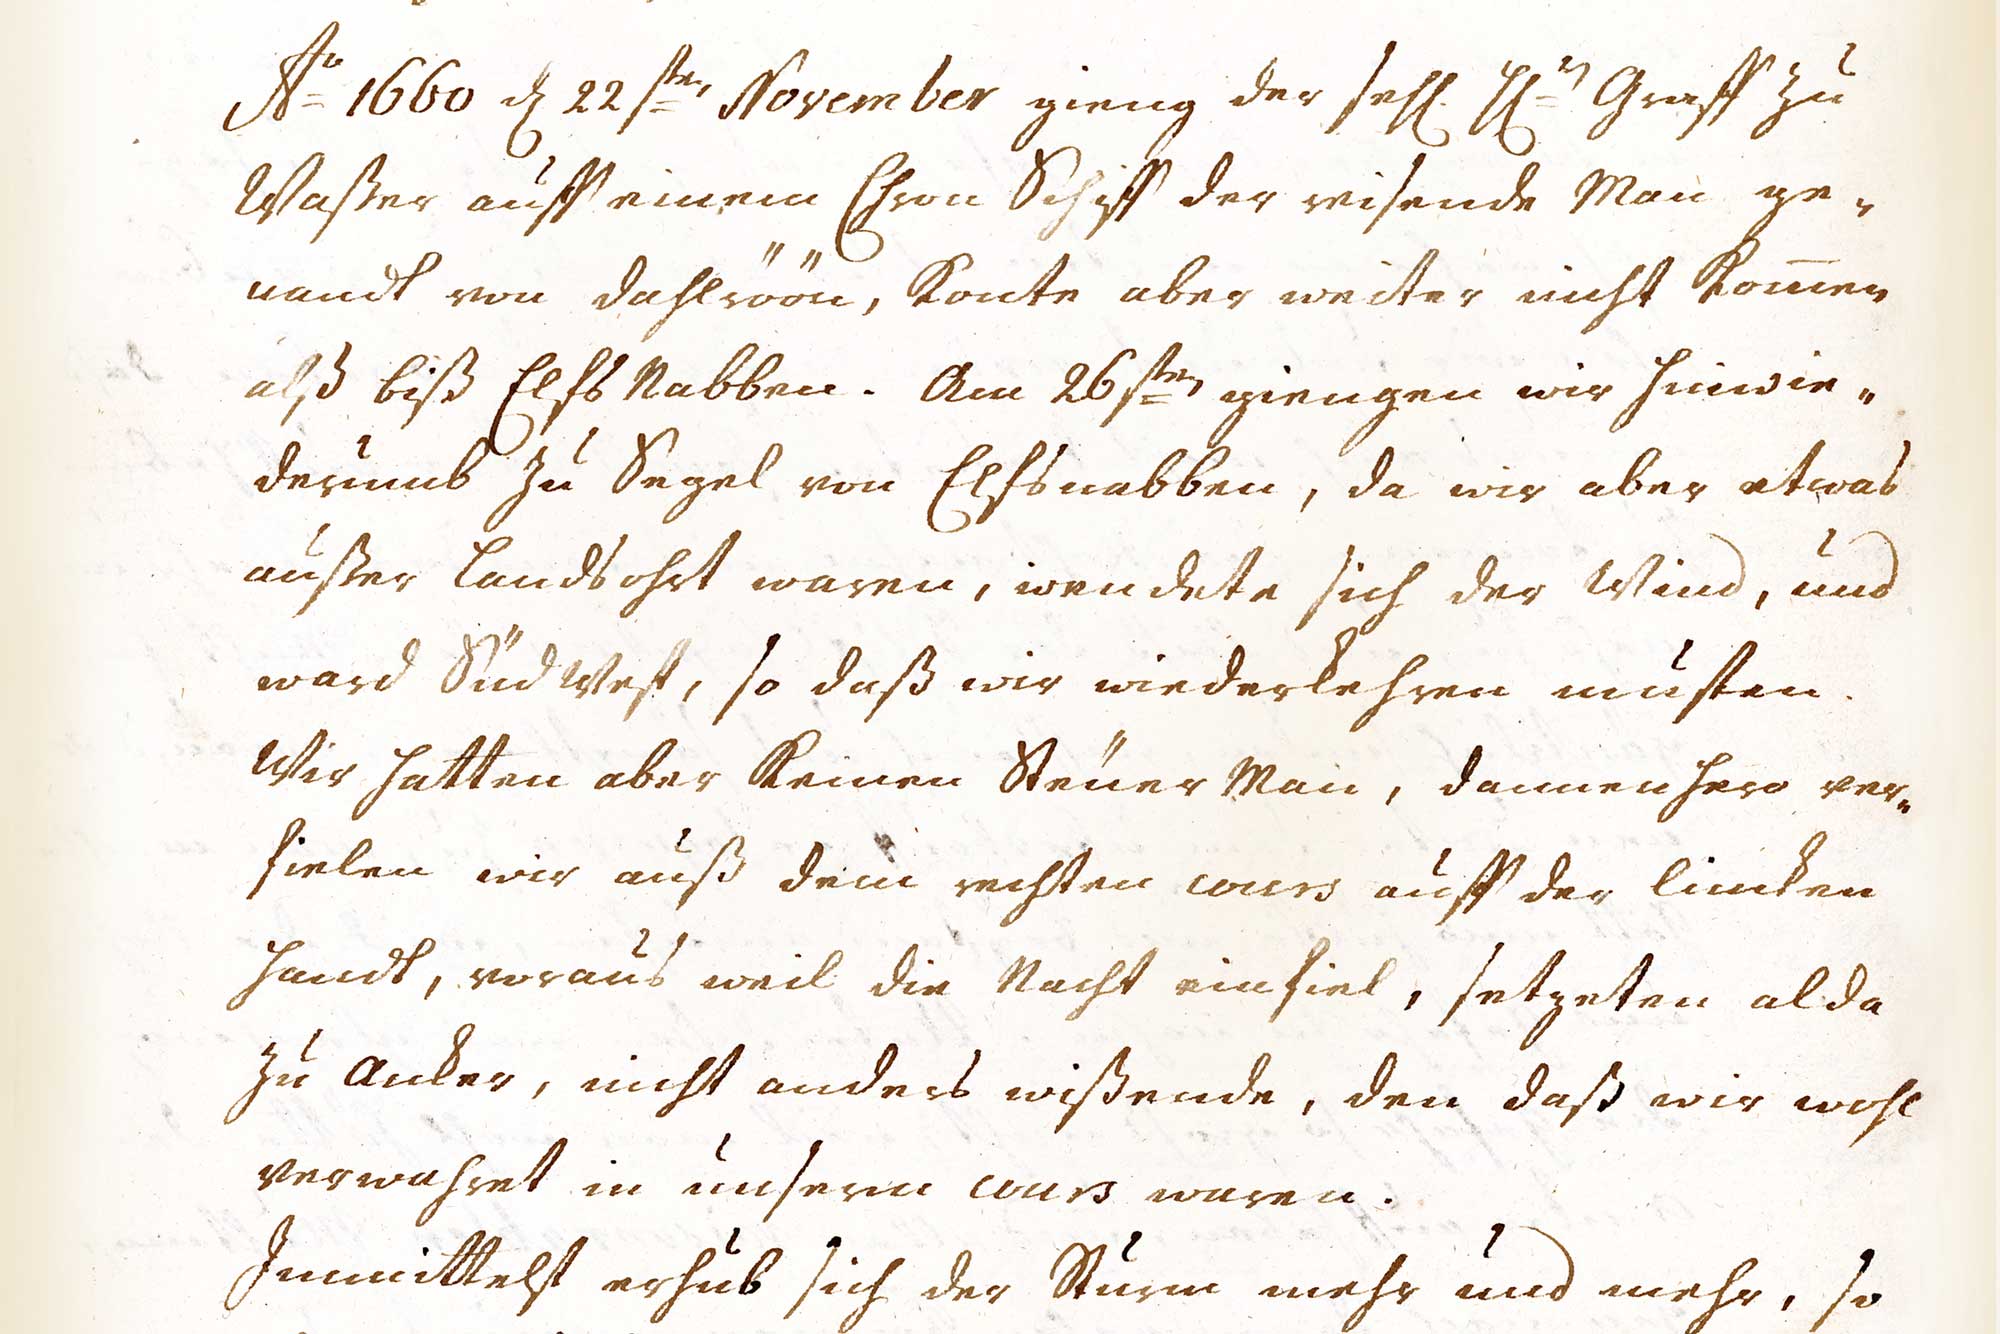 Aō 1660 d 22sten November gieng der sehl. Hr. Graff zu
Waßer auff einem Chron Schiff der reisende Man ge-
nandt von Dahlröön, Konte aber weiter nicht Kom̄en
alß biß Elfs Nabben. Am 26sten giengen wir hinwie-
derumb zu Segel von Elfsnabben, da wir aber etwas
außer Landsohrt waren, wendete sich der Wind, und
ward Süd West, so daß wir wiederkehren musten.
Wir hatten aber Keinen Steüer Man, dannenhero ver-
fielen wir auß dem rechten cours auff der lincken
Handt, voraus weil die Nacht einfiel, setzeten alda
zu Anker, nicht anders wißende, den daß wir wohl
verwahret in unserm cours waren.
Immittelst erhub sich der Sturm mehr und mehr, so